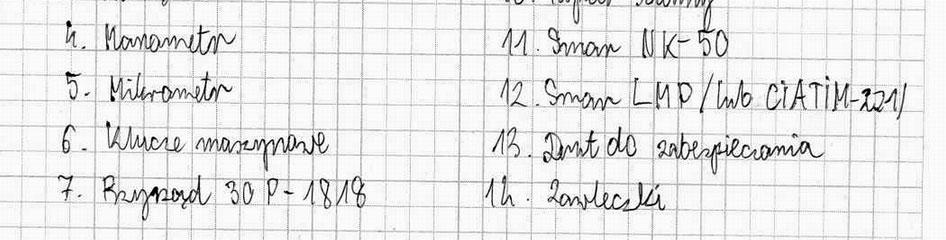 4. Manometr
5. Mikrometr
6. Klucze maszynowe
7. Przyrząd 30 P-1818
11. Smar NK-50
12. Smar LMP /lub CiATiM-221/
13. Drut do zabezpieczania
14. Zawleczki